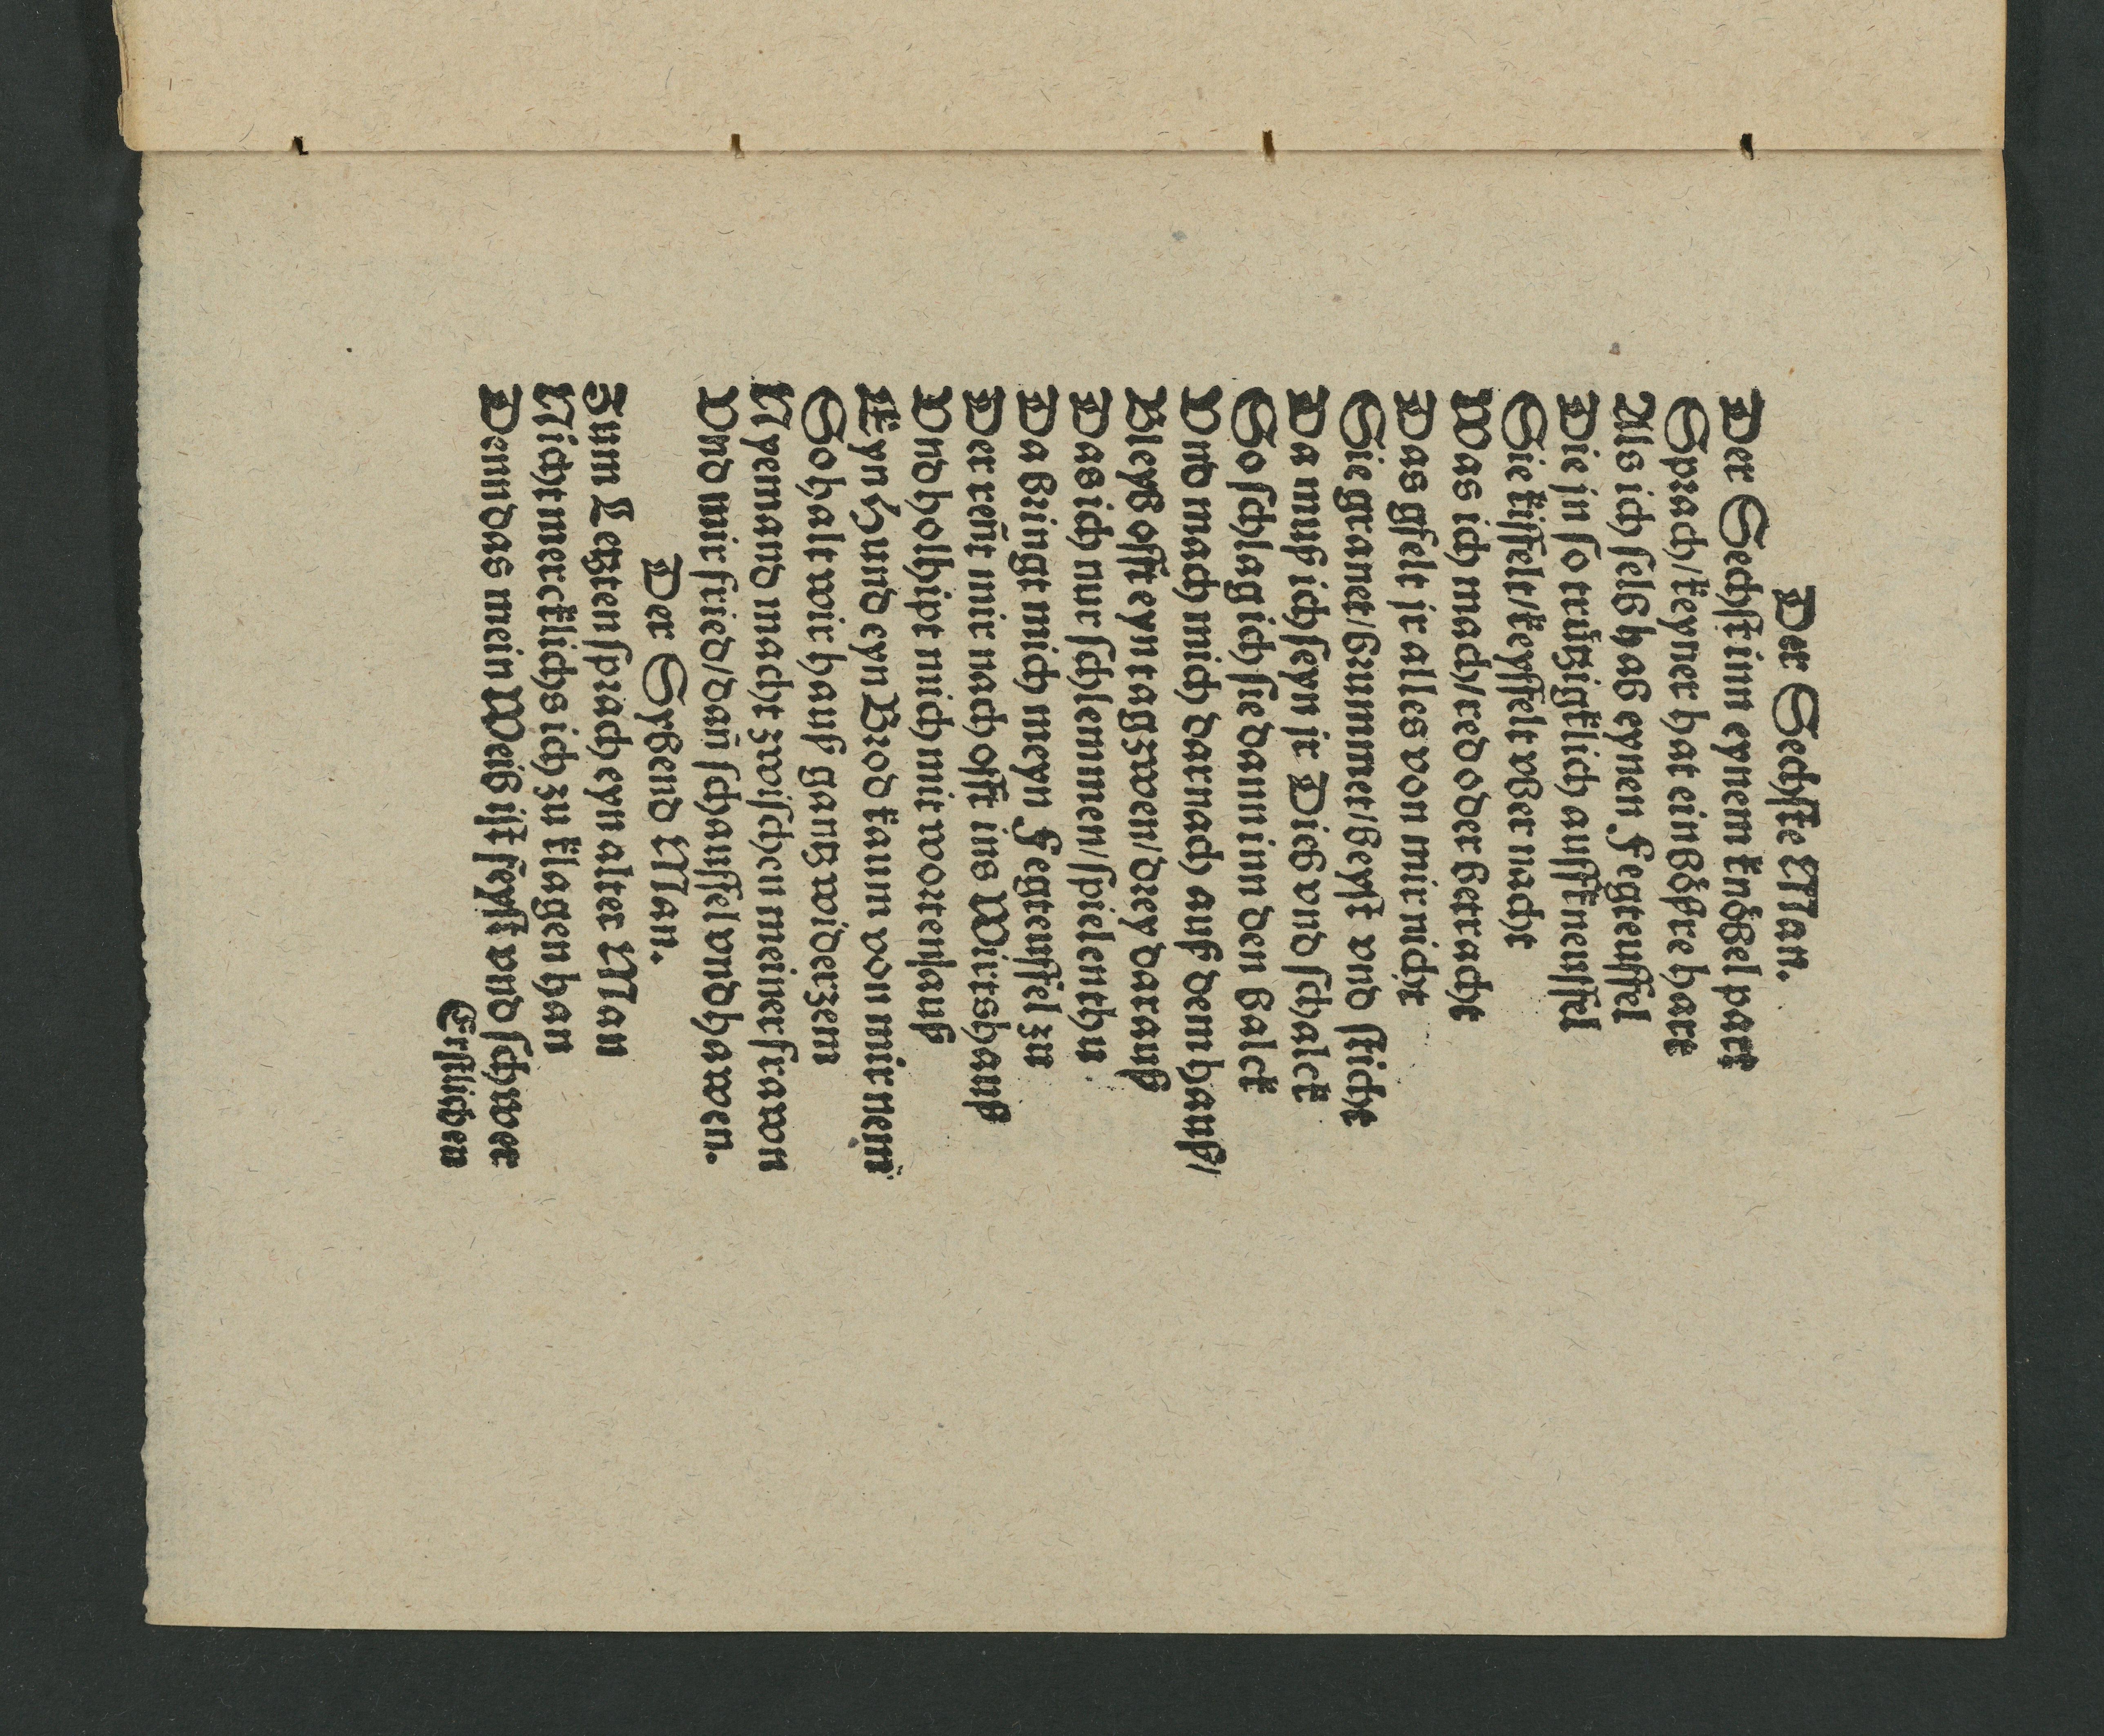 Der Sechſte Man.
Der Sechſt inn eynem knoͤbel part
Sprach/ keyner hat ein boͤſre hart
Als ich ſelb hab eynen Fegteuffel
Die jn ſo trützigklich auffkneuffel
Sie kiffelt/ keyffelt vber nacht
Was ich mach/ red oder betracht
Das gfelt jr alles von mir nicht
Sie granet/ brummet/ beyſt vnd ſticht
Da muß ich ſeyn jr Dieb vnd ſchalck
So ſchlag ich ſie dann inn den balck
Vnd mach mich darnach auß dem hauß/
Bleyb offt eyn tag zwen/ drey darauß
Das ich nur ſchlemmen/ ſpielen thu
Da bringt mich meyn Fegteuffel zu
Der reñt mir nach offt ins Wirtshauß
Vnd holhipt mich mit worten/ auß
Eyn Hund eyn Brod kaum von mir nem
So halt wir hauß gantz widerzem
Nyemand macht zwiſchen meiner frawn
Vnd mir fried/ dañ ſchauffel vnd hawen.
Der Sybend Man.
Zum Letzten ſprach eyn alter Man
Nicht mercklichs ich zu klagen han
Denn das mein Weib iſt feyſt vnd ſchwer
Erſtlichen